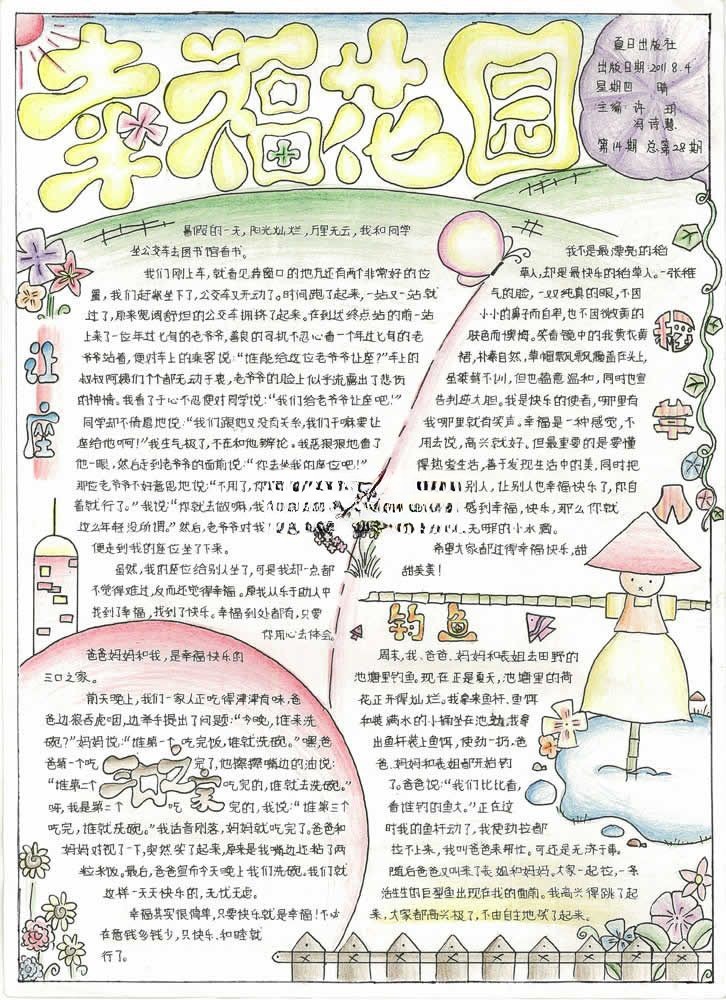 幸福花园
夏日出版社
出版日期:2011.8.4
星期四 晴
主编:许玥
冯诗慧
第14期 总第28期
让座
暑假的一天,阳光灿烂,万里无云,我和同学
坐公交车去图书馆看书。
我们刚上车,就看见靠窗口的地方还有两个非常好的位
置,我们赶紧坐下了,公交车又开动了。时间跑了起来,一站又一站就
过了,原来宽阔舒坦的公交车拥挤了起来。在到达终点站的前一站
上来了一位年过七旬的老爷爷,善良的司机不忍心看一个年过七旬的老
爷爷站着,便对车上的乘客说:“谁能给这位老爷爷让座?”车上的
叔叔阿姨们个个都无动于衷,老爷爷的脸上似乎流露出了悲伤
的神情。我看了于心不忍便对同学说:“我们给老爷爷让座吧!”
同学却不情愿地说:“我们跟他又没有关系,我们干嘛要让
座给他啊!”我生气极了,不在和他辩论。我恶狠狠地瞪了
他一眼,然后走到老爷爷的面前说:“你去坐我的座位吧!”
那位老爷爷不好意思地说:“不用了,你
着就行了。”我说:“你就去做嘛,我
这么年轻没所惯。”然后,老爷爷对我
便走到我的座位坐了下来。
虽然,我的座位给别人坐了,可是我却一点都
不觉得难过,反而还觉得幸福。原我从乐于助人中
找到了幸福,找到了快乐。幸福到处都有,只要
你用心去体会。
稻草人
我不是最漂亮的稻
草人,却是最快乐的稻草人。一张稚
气的脸,一双纯真的眼,不因
小小的鼻子而自卑,也不因微黄的
肤色而懊悔。笑看镜中的我黄衣黄
裙,朴素自然,草帽飘飘飘盖在头上,
虽装鲜不训,但也福意温和,同时也宣
告到逆大胆。我是快乐的使者,哪里有
我哪里就有笑声。幸福是一种感觉,不
用去说,高兴就好。但最重要的是要懂
得热爱生活,善于发现生活中的美,同时把
别人,让别人也幸福快乐了,你自
感到幸福,快乐,那么你就
无邪的小水滴。
希望大家都过得幸福快乐,甜
甜美美!
三口之家
爸爸妈妈和我,是幸福快乐的
三口之家。
前天晚上,我们一家人正吃得津津有味,爸
爸边狼吞虎咽,边举手提出了问题:“今晚,谁来洗
碗?”妈妈说:“谁第一个吃完饭,谁就洗碗。”嘿,爸
爸第一个吃完了,他擦擦嘴边的油说:
“谁第二个吃完的,谁就去洗碗。”
呀,我是第二个吃完的,我说:“谁第三个
吃完,谁就洗碗。”我话音刚落,妈妈就吃完了。爸爸和
妈妈对视了一下,突然笑了起来,原来是我嘴边还粘了两
粒米饭。最后,爸爸宣布今天晚上我们洗碗。我们就
这样一天天快乐的,无忧无虑。
幸福其实很简单,只要快乐就是幸福!不必
在意钱多钱少,只快乐、和睦就
行了。
钓鱼
周末,我、爸爸、妈妈和表姐去田野的
池塘里钓鱼。现在正是夏天,池塘里的荷
花正开得灿烂。我拿来鱼杆、鱼饵
和装满水的小桶坐在池边,我拿
出鱼杆装上鱼饵,使劲一扔。爸
爸、妈妈和表姐都开始钓
了。爸爸说:“我们比比看,
看谁钓的鱼大。”正在这
时我的鱼杆动了,我使劲拉都
拉不上来,我叫爸爸来帮忙。可还是无济于事。
随后爸爸又叫来了表姐和妈妈。大家一起拉,一条
活生生的巨型鱼出现在我的面前。我高兴得跳了起
来,大家都高兴极了,不由自主地笑了起来。